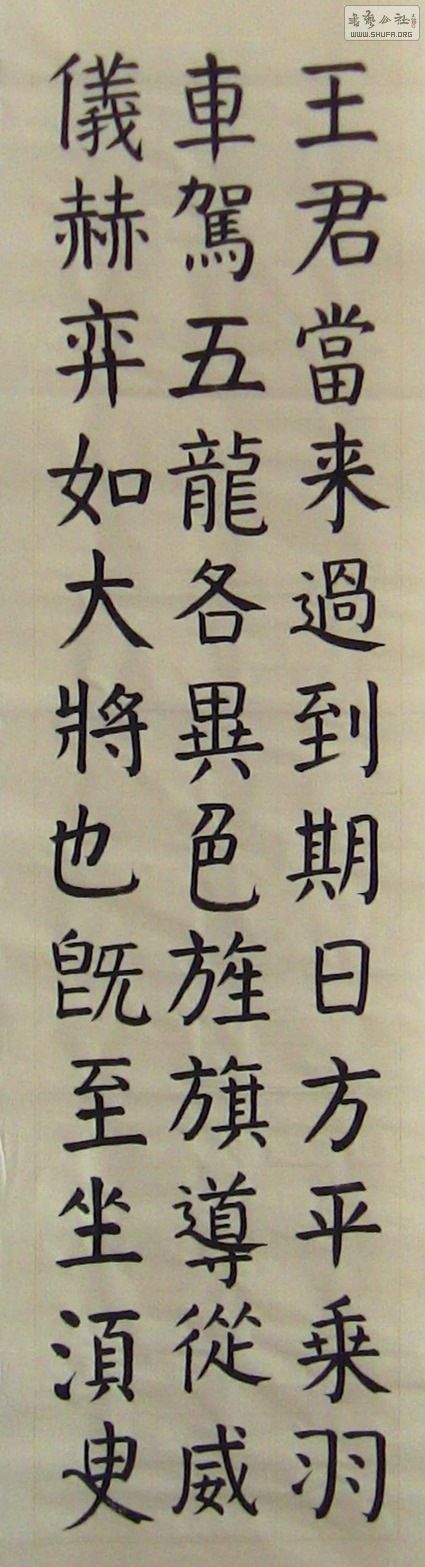 王君當来過到期日方平乗羽
車駕五龍各異色旌旗導從威
儀赫弈如大將也既至坐湏臾
WWW.SHUFA.ORG